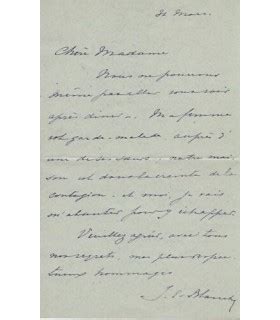 24 Mars.
Chère Madame
Nous ne pourrons
même pas aller vous voir
après dîner. Ma femme
est garde-malade auprès d'
une de ses sœurs; notre mai
son est dans la crainte de la
contagion. et moi, je vais
m'absenter pour y échapper.
Veuillez agréer, avec tous
nos regrets, mes plus respec
tueux hommages
J. E. Blanche